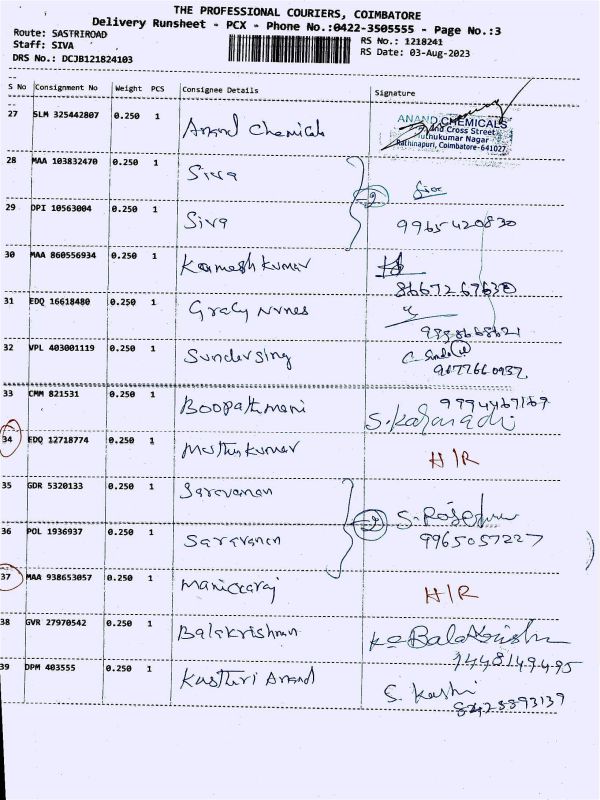 THE PROFESSIONAL COURIERS, COIMBATORE
Delivery Runsheet - PCX - Phone No.:0422-3505555 - Page No.:3
Route: SASTRIROAD
Staff: SIVA
DRS No.: DCJB121824103
RS No.: 1218241
RS Date: 03-Aug-2023
S No Consignment No Weight PCS Consignee Details Signature
27 SLM 325442807 0.250 1 Anand Chemicals
ANAND CHEMICALS
Cross Street
Muthukumar Nagar
Rathinapuri, Coimbatore-641027
28 MAA 103832470 0.250 1 Siva
2
29 DPI 10563004 0.250 1 Siva 9965420830
30 MAA 860556934 0.250 1 Kamesh Kumar
31 EDQ 16618480 0.250 1
32 VPL 403001119 0.250 1 Sundersing
33 CMM 821531 0.250 1 Boopathmani
34 EDQ 12718774 0.250 1 Muthukumar H/R
35 GDR 5320133 0.250 1 Saravanan
2
36 POL 1936937 0.250 1 Saravanan 9965057227
37 MAA 938653057 0.250 1 Manickaraj H/R
38 GVR 27970542 0.250 1 Balakrishnan
39 DPM 403555 0.250 1 Kasthuri Anand